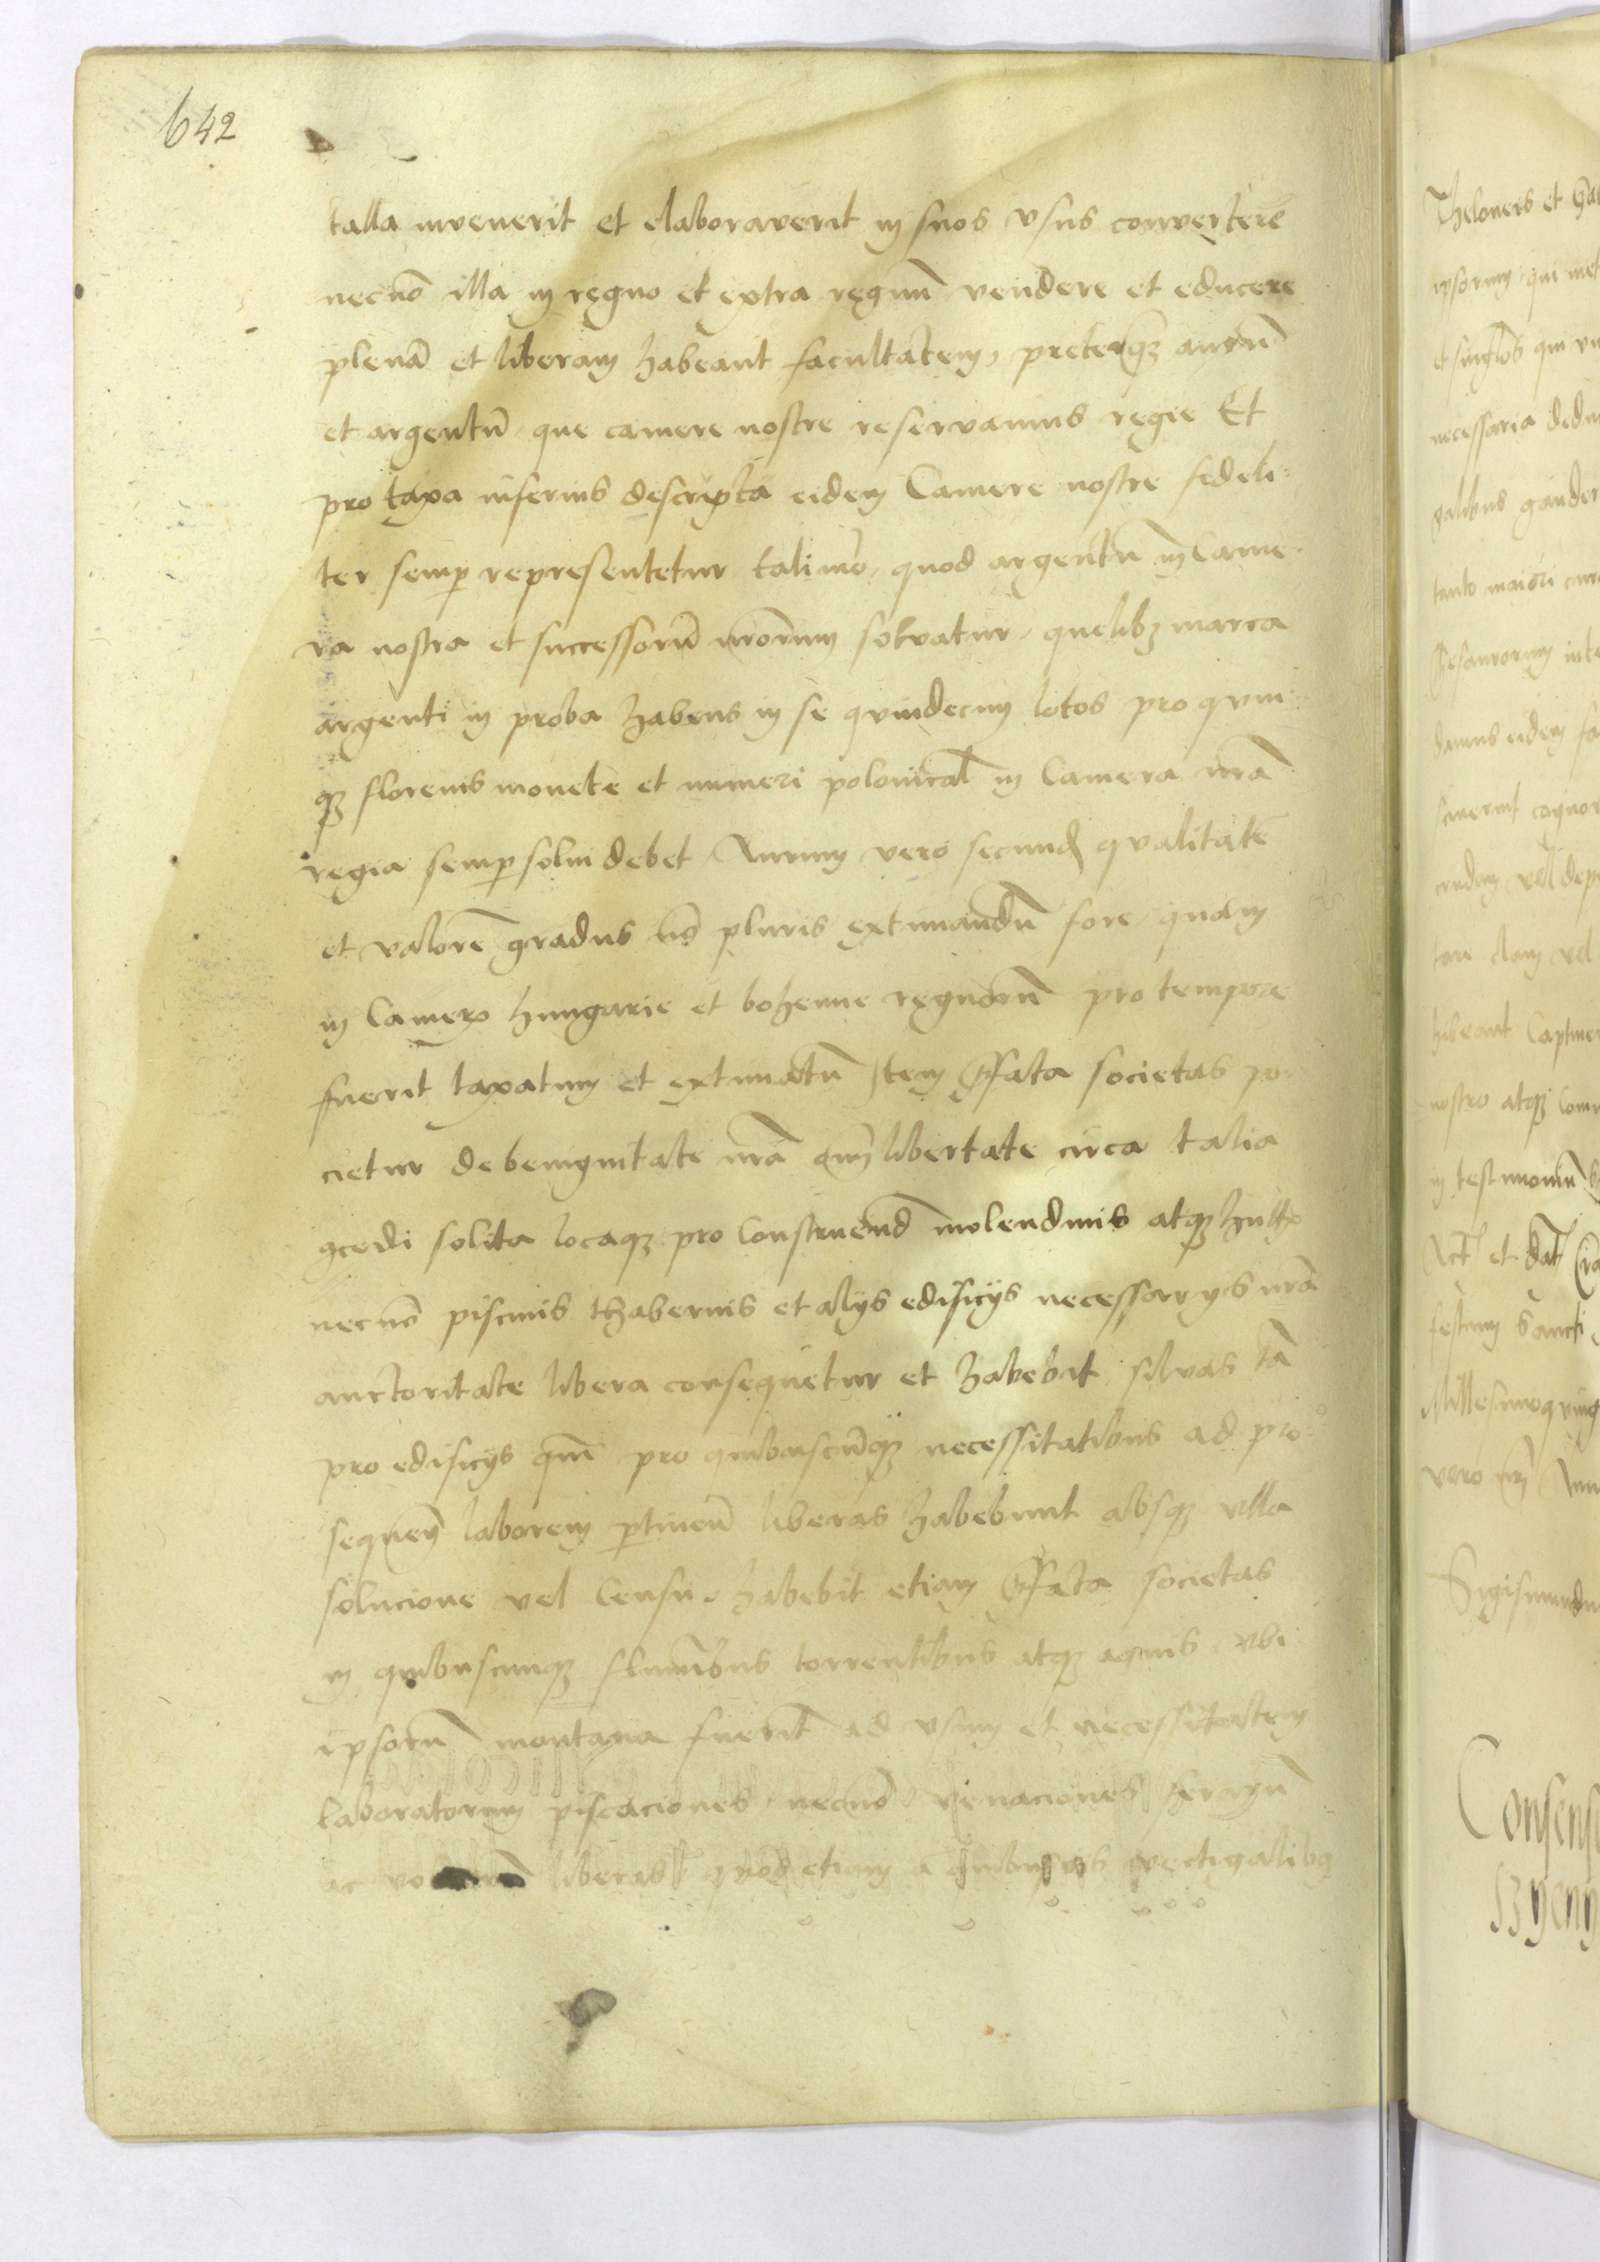 642
talla invenerit et elaboraverit in suos vsus convertere
necnō illa in regno et extra regnū vendere et educere
plenā et liberam habeant facultatem, preterqz aurū
et argentū que camere nostre reservamus regie Et
pro taxa inferius descripta eidem Camere nostre fideli:
ter semp representetur tali mō, quod argentū in Came-
ra nostra et successorū nrorum solvatur, quelibz marca
argenti in proba habens in se quindecim lotos pro quin:
qz florenis monete et numeri polonical in Camera nrā
regia semp solui debet Aurum vero secund qualitatē
et valorē gradus nō pluris extimandū fore quam
in Camera hungarie et bohemie regnorū pro tempore
fuerit taxatum et extimatū Item pfata societas po-
cietur de benignitate nrā omī libertate circa talia
9cedi solita locaqz pro Construend molendinis atqz hutt
necnō piscinis thabernis et alijs edificijs necessarijs nrā
auctoritate libera consequetur et habebit silvas tā
pro edificijs qm̄ pro quibuscūqz necessitatibus ad pro-
sequen laborem ptinen liberas habebunt absqz vlla
solucione vel Censu. habebit etiam pfata societas
in quibuscumqz fluminibus torrentibus atqz aquis vbi
ipsorū montana fuerit ad vsum et necessitatem
laboratorum piscaciones, necnō venaciones ferarū
ac liberas quod etiam a quibusvis vectigalibus
Theloneis et
ipsorum qui
et singlos qui
necessaria
galibus
tanto maiori
Thesaurorum
damus eidem
vel
clam vel
habeant
nostro atqz
in testimoniū
Act et dat
festum Sancti
Millesimoquing
vero nri
Sigismundu
Consens